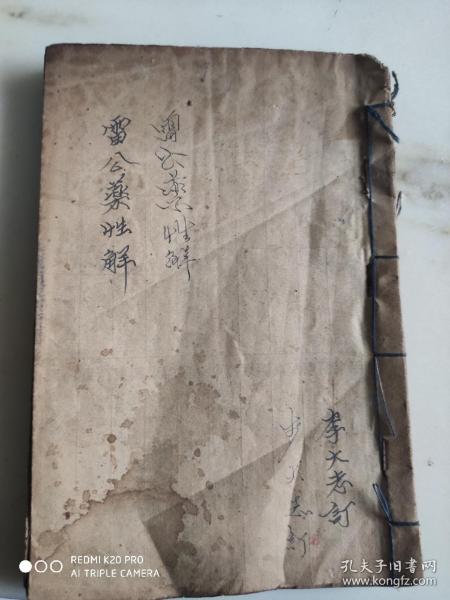 雷公药性解
雷公藥性解
李大志訂
REDMI K20 PRO
AI TRIPLE CAMERA
孔夫子旧书网
www.kongfz.com